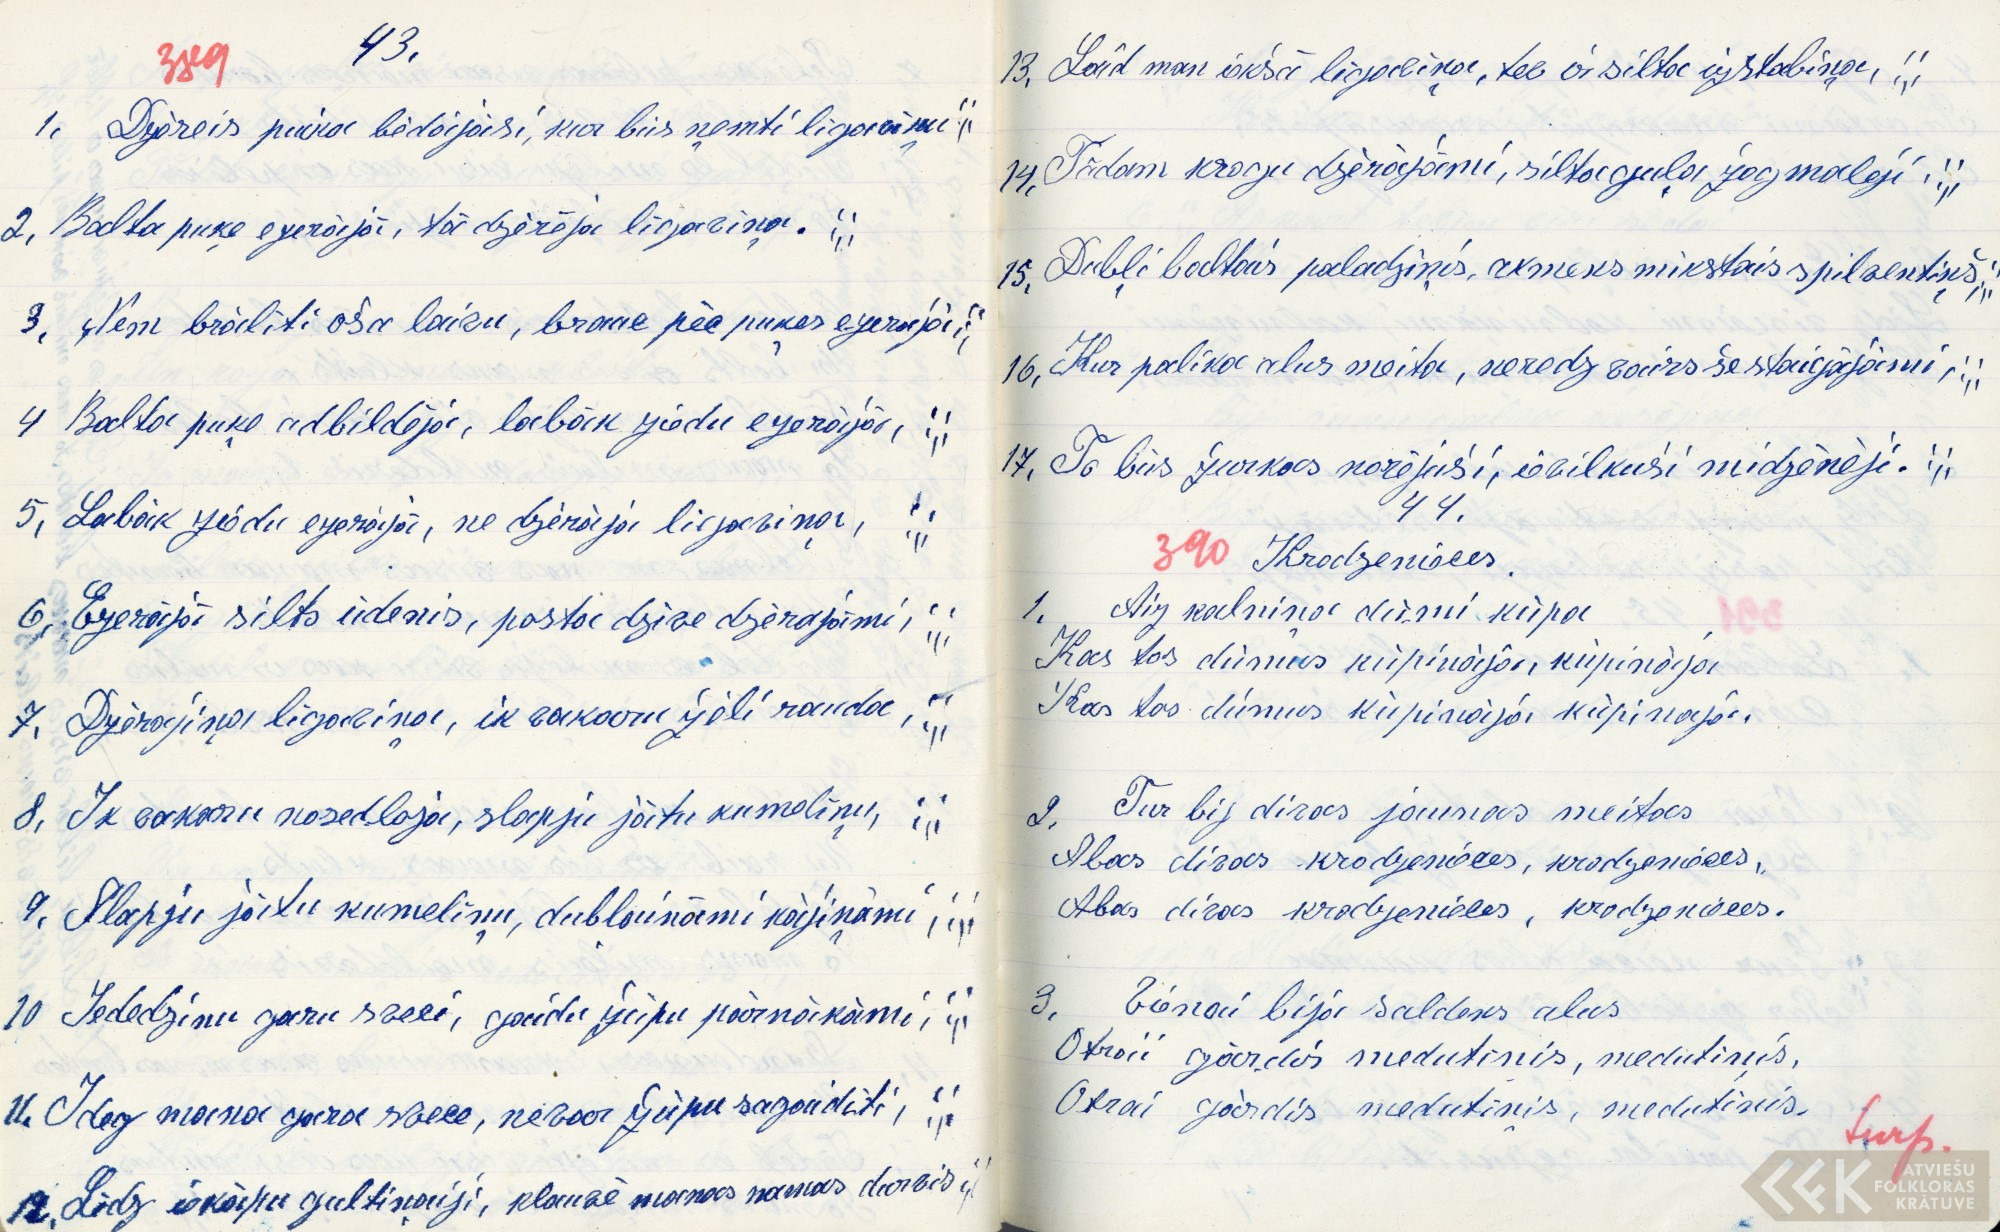 389
43.
1. Dzėreis puika bėdājāsi, kur būs ņemti ligaviņu :,:
2, Balta puķe ezerājā, tā dzėrāja ligaviņa. :,:
3, Ņem brāliti oša laivu, brauc pėc puķes ezerājā :,:
4 Balta puķe atbildėja, labāk ziedu ezerājā, :,:
5, Labāk ziedu ezerājā, ne dzėrāja ligaviņa, :,:
6, Ezerājā silts ūdenis, posta dzive dzėrajāmi, :,:
7, Dzėrajiņa ligaviņa, ik vakaru žėli rauda, :,:
8, Ik vakaru nosedloja, slapju jātu kumeliņu, :,:
9, Slapju jātu kumeliņu, dublaiņāmi kājiņāmi, :,:
10 Iededzinu garu sveci, gaidu žūpu pārnākāmi, :,:
11. Ideg mana gara svece, nevar žūpu sagaiditi, :,:
12, Lidz iekāpu gultiņaiji, klauvė manas namas durvis :,:
13, Laid man iekšā ligaviņa, tev ir silta istabiņa, :,:
14, Tādam krogu dzėrājāmi, silta guļa žogmalėji. :,:
15, Dubļi baltais paladziņis, akmens mikstais spilventiņš, :,:
16, Kur palika alus meita, neredz vairs še staigājāmi, :,:
17, To būs žurkas norėjuši, ievilkuši midzėnėji. :,:
44.
390 Krodzenieces.
1. Aiz kalniņa dūmi kūpa
Kas tos dūmus kūpināja, kūpināja
Kas tos dūmus kūpināja kūpinaja.
2. Tur bij divas jaunas meitas
Abas divas krodzenieces, krodzenieces,
Abas divas krodzenieces, krodzenieces.
3, Vienai bija saldens alus
Otrai gārdis medutinis, medutiņis,
Otrai gārdis medutiņis, medutinis.
turp.
LATVIEŠU
FOLKLORAS
KRĀTUVE